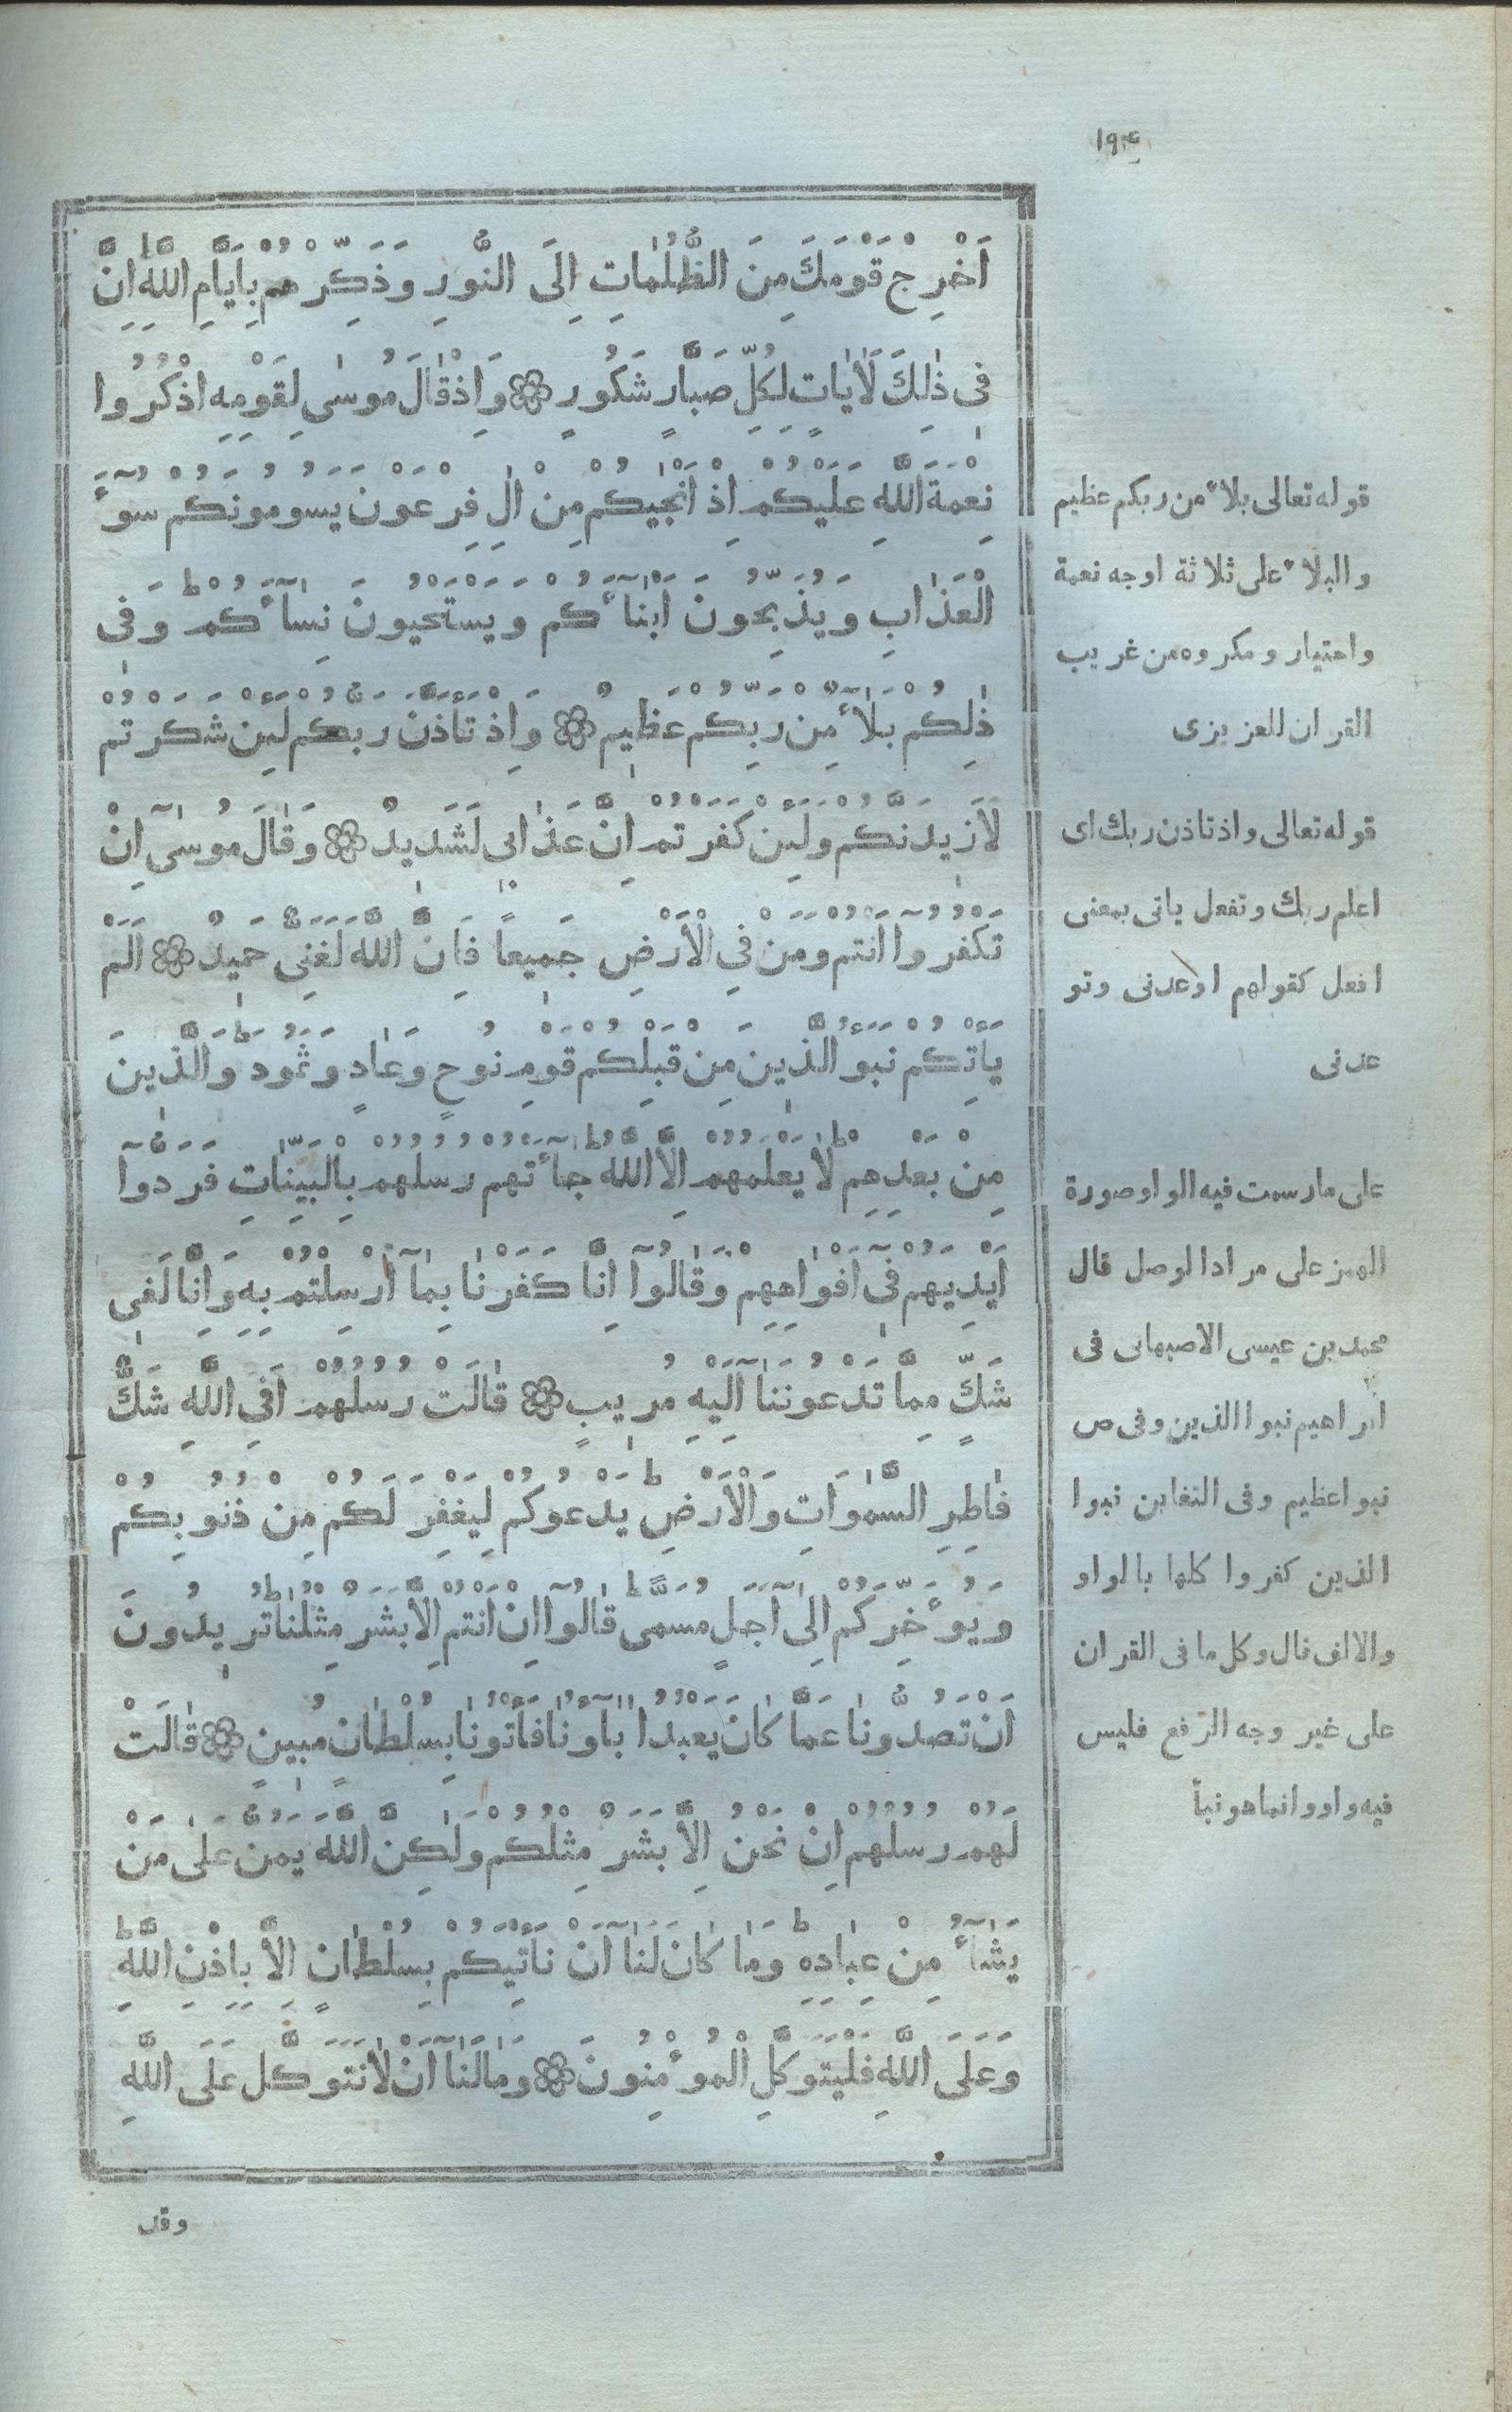 ١٩٤
اَخْرِجْ قَوْمَكَ مِنَ الظُّلُمٰاتِ اِلَى النُّورِ وَذَكِّرْهُمْ بِاَيَّامِ اللّٰهِ اِنَّ
فِى ذٰلِكَ لَاٰيٰاتٍ لِكُلِّ صَبَّارٍ شَكُورٍ ۞ وَاِذْ قٰالَ مُوسٰى لِقَوْمِهِ اذْكُرُوا
نِعْمَةَ اللّٰهِ عَلَيْكُمْ اِذْ اَنْجٰيكُمْ مِنْ اٰلِ فِرْعَوْنَ يَسُومُونَكُمْ سُوٓءَ
الْعَذٰابِ وَيُذَبِّحُونَ اَبْنٰٓاءَكُمْ وَيَسْتَحْيُونَ نِسٰٓاءَكُمْ ط وَفِى
ذٰلِكُمْ بَلٰٓاءٌ مِنْ رَبِّكُمْ عَظِيمٌ ۞ وَاِذْ تَأَذَّنَ رَبُّكُمْ لَئِنْ شَكَرْتُمْ
لَاَزِيدَنَّكُمْ وَلَئِنْ كَفَرْتُمْ اِنَّ عَذٰابِى لَشَدِيدٌ ۞ وَقٰالَ مُوسٰىٓ اِنْ
تَكْفُرُوٓا اَنْتُمْ وَمَنْ فِى الْاَرْضِ جَمِيعاً فَاِنَّ اللّٰهَ لَغَنِىٌّ حَمِيدٌ ۞ اَلَمْ
يَأْتِكُمْ نَبَؤُا الَّذِينَ مِنْ قَبْلِكُمْ قَوْمِ نُوحٍ وَعٰادٍ وَثَمُودَ ط وَالَّذِينَ
مِنْ بَعْدِهِمْ ط لٰا يَعْلَمُهُمْ اِلَّا اللّٰهُ ط جٰٓاءَتْهُمْ رُسُلُهُمْ بِالْبَيِّنٰاتِ فَرَدُّوٓا
اَيْدِيَهُمْ فِىٓ اَفْوٰاهِهِمْ وَقٰالُوٓا اِنَّا كَفَرْنٰا بِمٰٓا اُرْسِلْتُمْ بِهِ وَاِنَّا لَفِى
شَكٍّ مِمَّا تَدْعُونَنٰٓا اِلَيْهِ مُرِيبٍ ۞ قٰالَتْ رُسُلُهُمْ اَفِى اللّٰهِ شَكٌّ
فٰاطِرِ السَّمٰوَاتِ وَالْاَرْضِ ط يَدْعُوكُمْ لِيَغْفِرَ لَكُمْ مِنْ ذُنُوبِكُمْ
وَيُؤَخِّرَكُمْ اِلٰىٓ اَجَلٍ مُسَمًّى ط قٰالُوٓا اِنْ اَنْتُمْ اِلَّا بَشَرٌ مِثْلُنٰا ط تُرِيدُونَ
اَنْ تَصُدُّونٰا عَمَّا كٰانَ يَعْبُدُ اٰبٰٓاؤُنٰا فَأْتُونٰا بِسُلْطٰانٍ مُبِينٍ ۞ قٰالَتْ
لَهُمْ رُسُلُهُمْ اِنْ نَحْنُ اِلَّا بَشَرٌ مِثْلُكُمْ وَلٰكِنَّ اللّٰهَ يَمُنُّ عَلٰى مَنْ
يَشٰٓاءُ مِنْ عِبٰادِهِ ط وَمٰا كٰانَ لَنٰٓا اَنْ نَأْتِيَكُمْ بِسُلْطٰانٍ اِلَّا بِاِذْنِ اللّٰهِ ط
وَعَلَى اللّٰهِ فَلْيَتَوَكَّلِ الْمُؤْمِنُونَ ۞ وَمٰا لَنٰٓا اَنْ لٰا نَتَوَكَّلَ عَلَى اللّٰهِ
وقد
قوله تعالى بلاء من ربكم عظيم
والبلاء على ثلاثة اوجه نعمة
واختيار ومكروه من غريب
القران للعزيزى
قوله تعالى واذ تاذن ربك اى
اعلم ربك وتفعل ياتى بمعنى
افعل كقولهم اوعدنى وتو
عدنى
على ما رسمت فيه الواو صورة
الهمز على مراد الوصل قال
محمد بن عيسى الاصبهانى فى
ابراهيم نبوا الذين وفى ص
نبوا عظيم وفى التغابن نبوا
الذين كفروا كلها بالواو
والالف قال وكل ما فى القران
على غير وجه الرفع فليس
فيه واو وانما هو نبأ